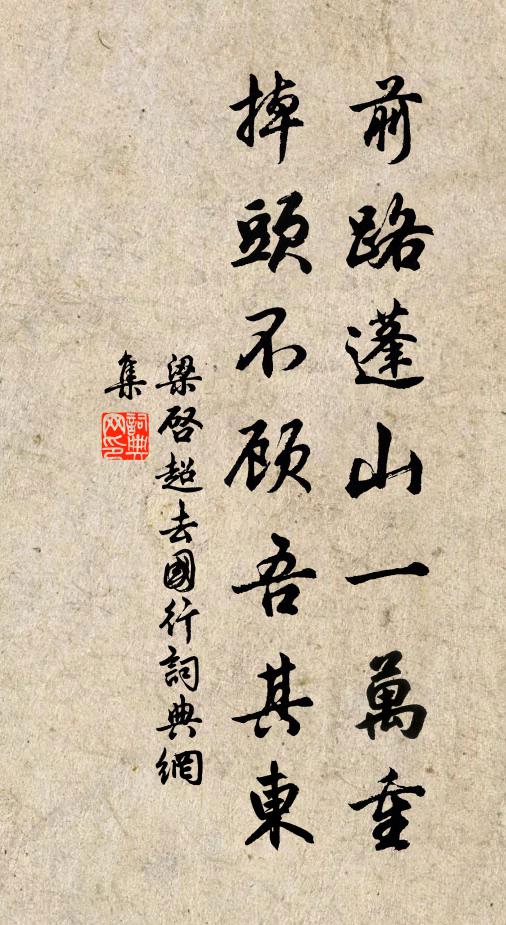 前路蓬山一萬重
掉頭不顧吾其東
梁啓超去國行詞典網
集
詞典网印